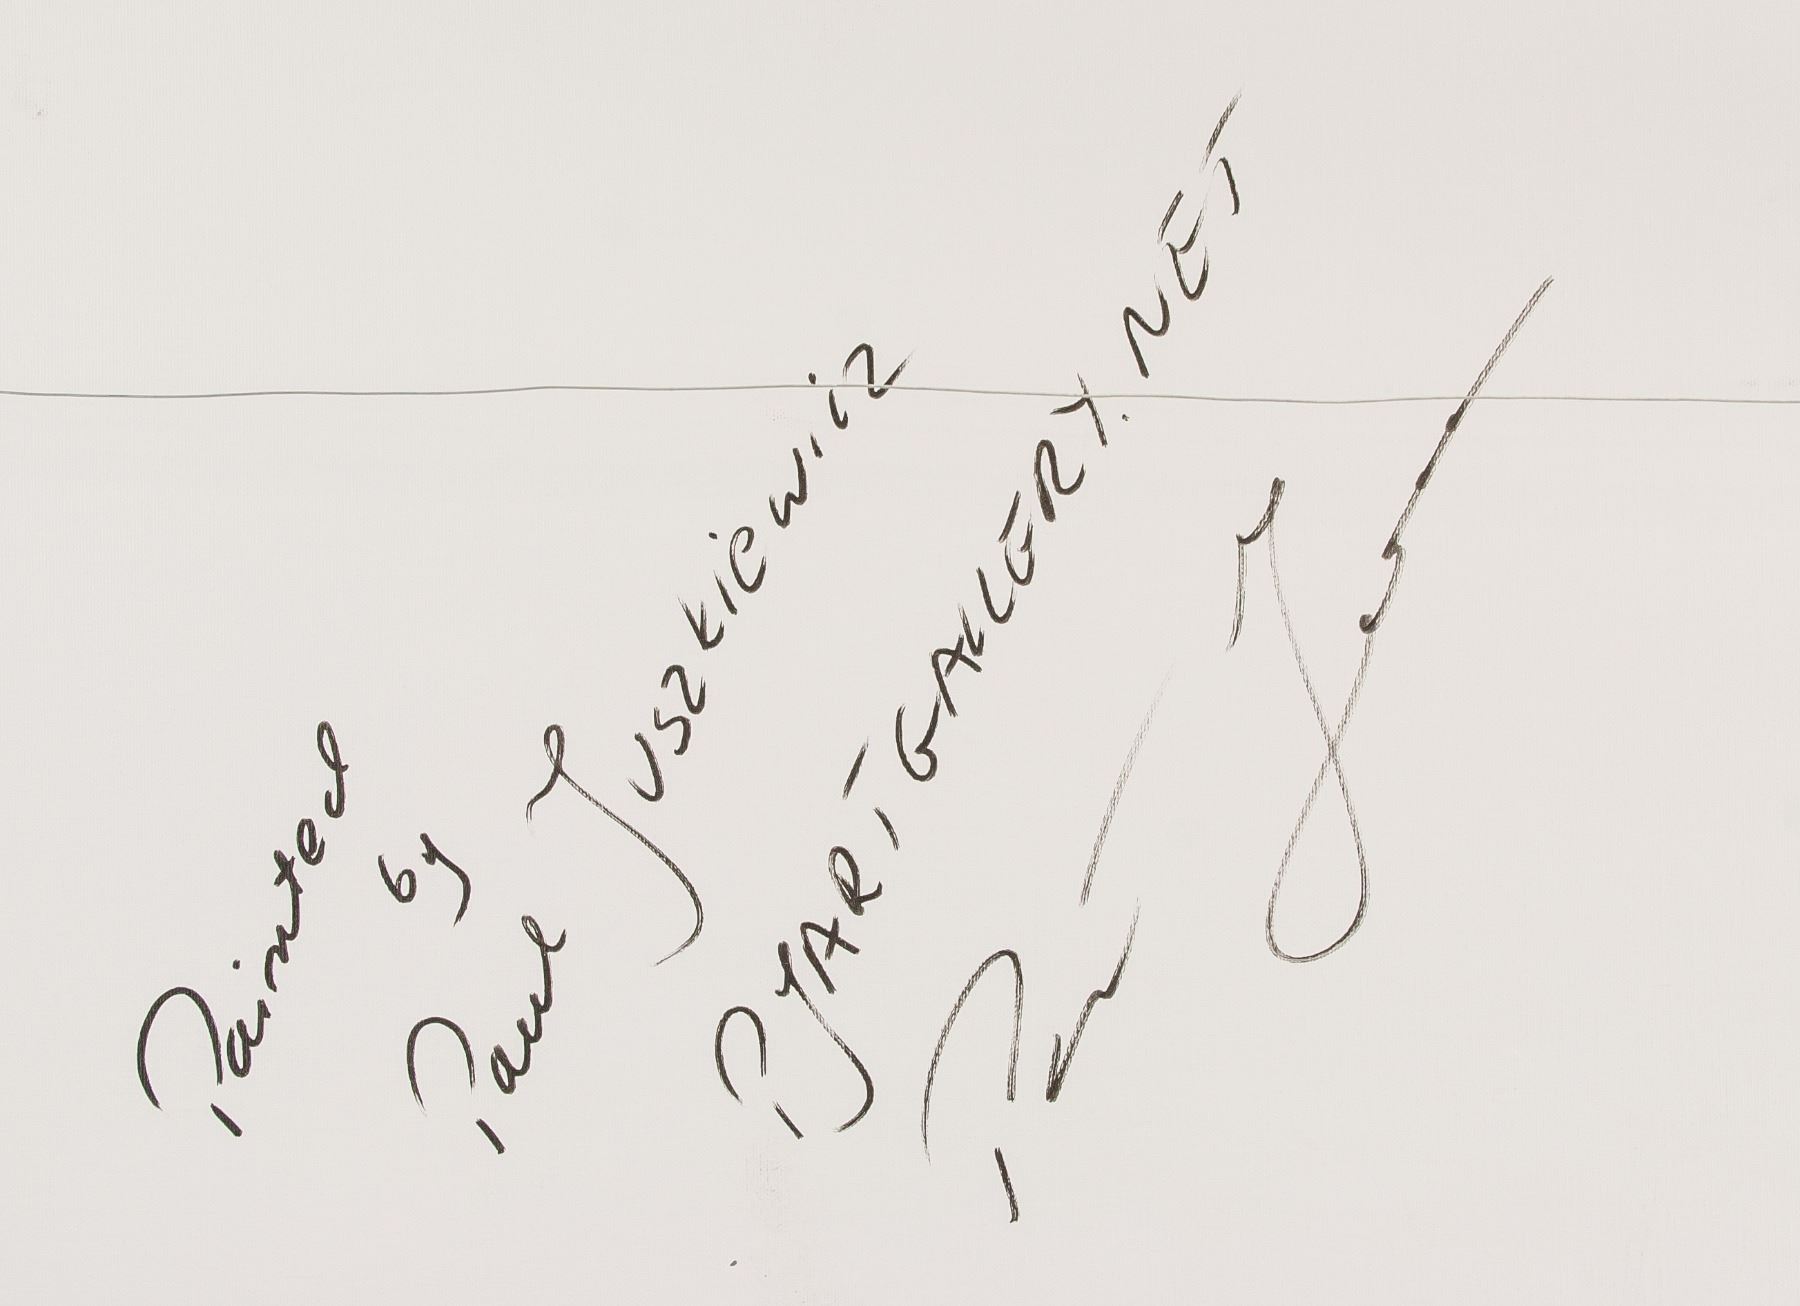 Painted
by
Paul Juszkiewiz
PJARTGALLERY.NET